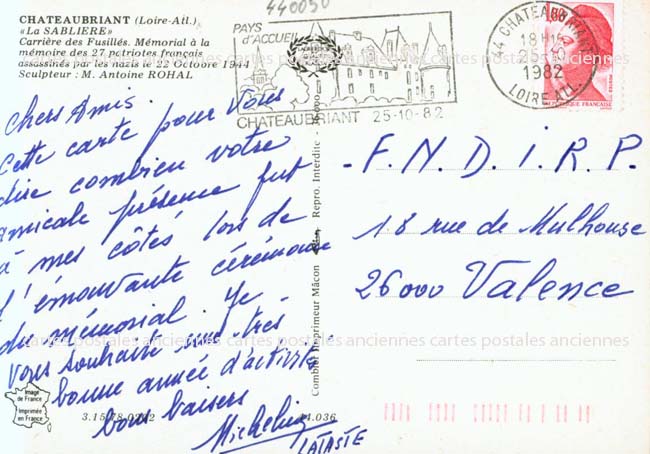 CHATEAUBRIANT (Loire-Atl.)
«La SABLIERE»
Carrière des Fusillés. Mémorial à la
mémoire des 27 patriotes français
assassinés par les nazis le 22 Octobre 1944
Sculpteur : M. Antoine ROHAL
440050
PAYS
D'ACCUEIL
CHATEAUBRIANT 25-10-82
44 CHATEAUBRIANT
18 H15
25-10
1982
LOIRE ATL.
1,80
REPUBLIQUE FRANÇAISE
Chers Amis
Cette carte pour vous
dire combien votre
amicale présence fut
à mes côtés lors de
l'émouvante cérémonie
du mémorial. Je
vous souhaite une très
bonne année d'activités
bons baisers
Micheline
LATASTE
- F. N. D. I. R. P.
18 rue de Mulhouse
26000 Valence
Combier Imprimeur Mâcon
Repro. Interdite -
cartes postales anciennes cartes postales anciennes cartes postales anciennes
Image
de France
Imprimée
en France